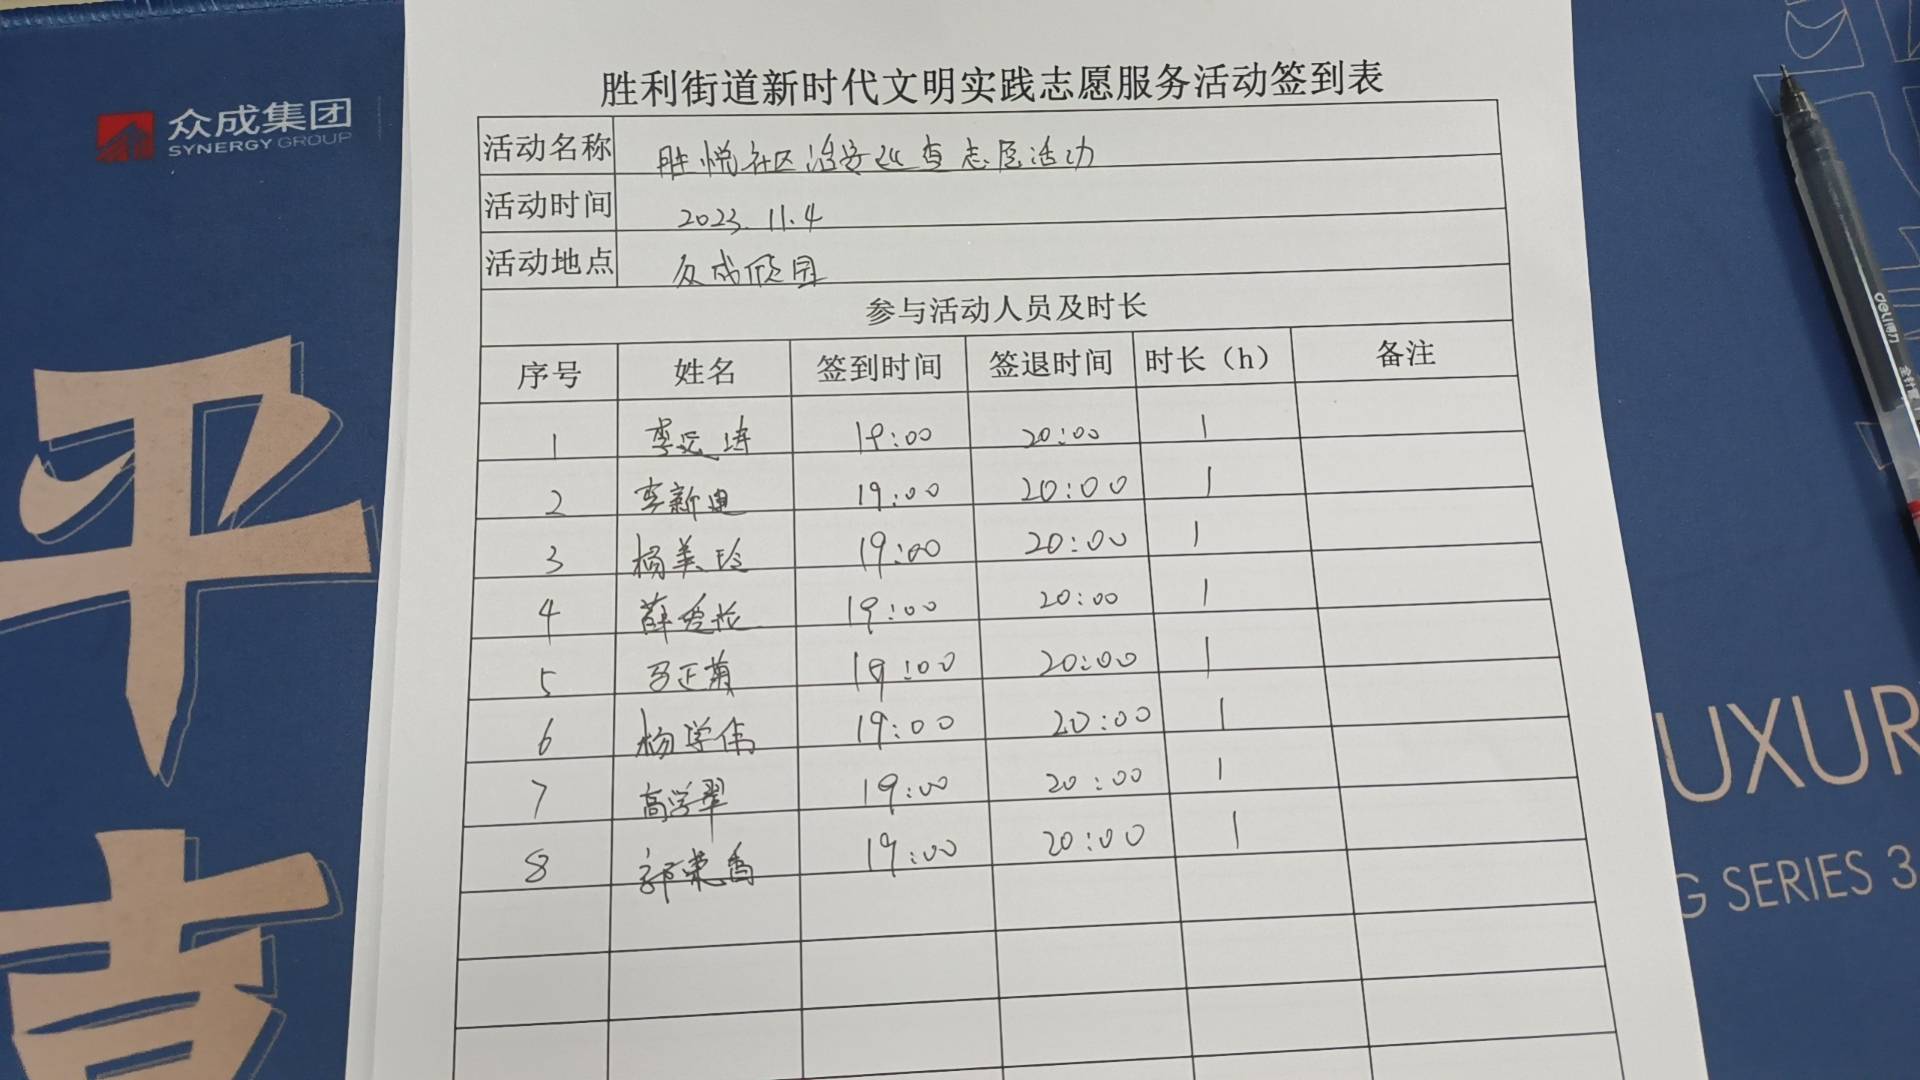 众成集团
SYNERGY GROUP
胜利街道新时代文明实践志愿服务活动签到表
活动名称 胜悦社区治安巡查志愿活动
活动时间 2023.11.4
活动地点 众成欣园
参与活动人员及时长
序号 姓名 签到时间 签退时间 时长（h） 备注
1 19:00 20:00 1
2 李新迪 19:00 20:00 1
3 杨美玲 19:00 20:00 1
4 薛爱松 19:00 20:00 1
5 马正菊 19:00 20:00 1
6 杨学伟 19:00 20:00 1
7 高学翠 19:00 20:00 1
8 郭荣香 19:00 20:00 1
平
吉
deli得力
UXUR
G SERIES 3